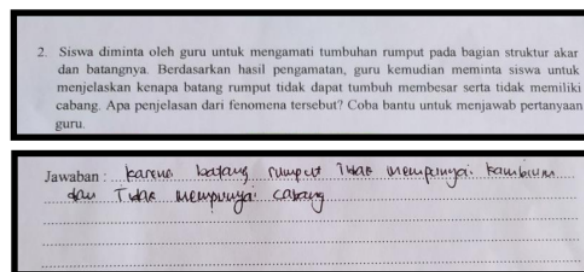 2. Siswa diminta oleh guru untuk mengamati tumbuhan rumput pada bagian struktur akar
dan batangnya. Berdasarkan hasil pengamatan, guru kemudian meminta siswa untuk
menjelaskan kenapa batang rumput tidak dapat tumbuh membesar serta tidak memiliki
cabang. Apa penjelasan dari fenomena tersebut? Coba bantu untuk menjawab pertanyaan
guru.
Jawaban : karena batang rumput Tidak mempunyai kambium
dan Tidak mempunyai cabang